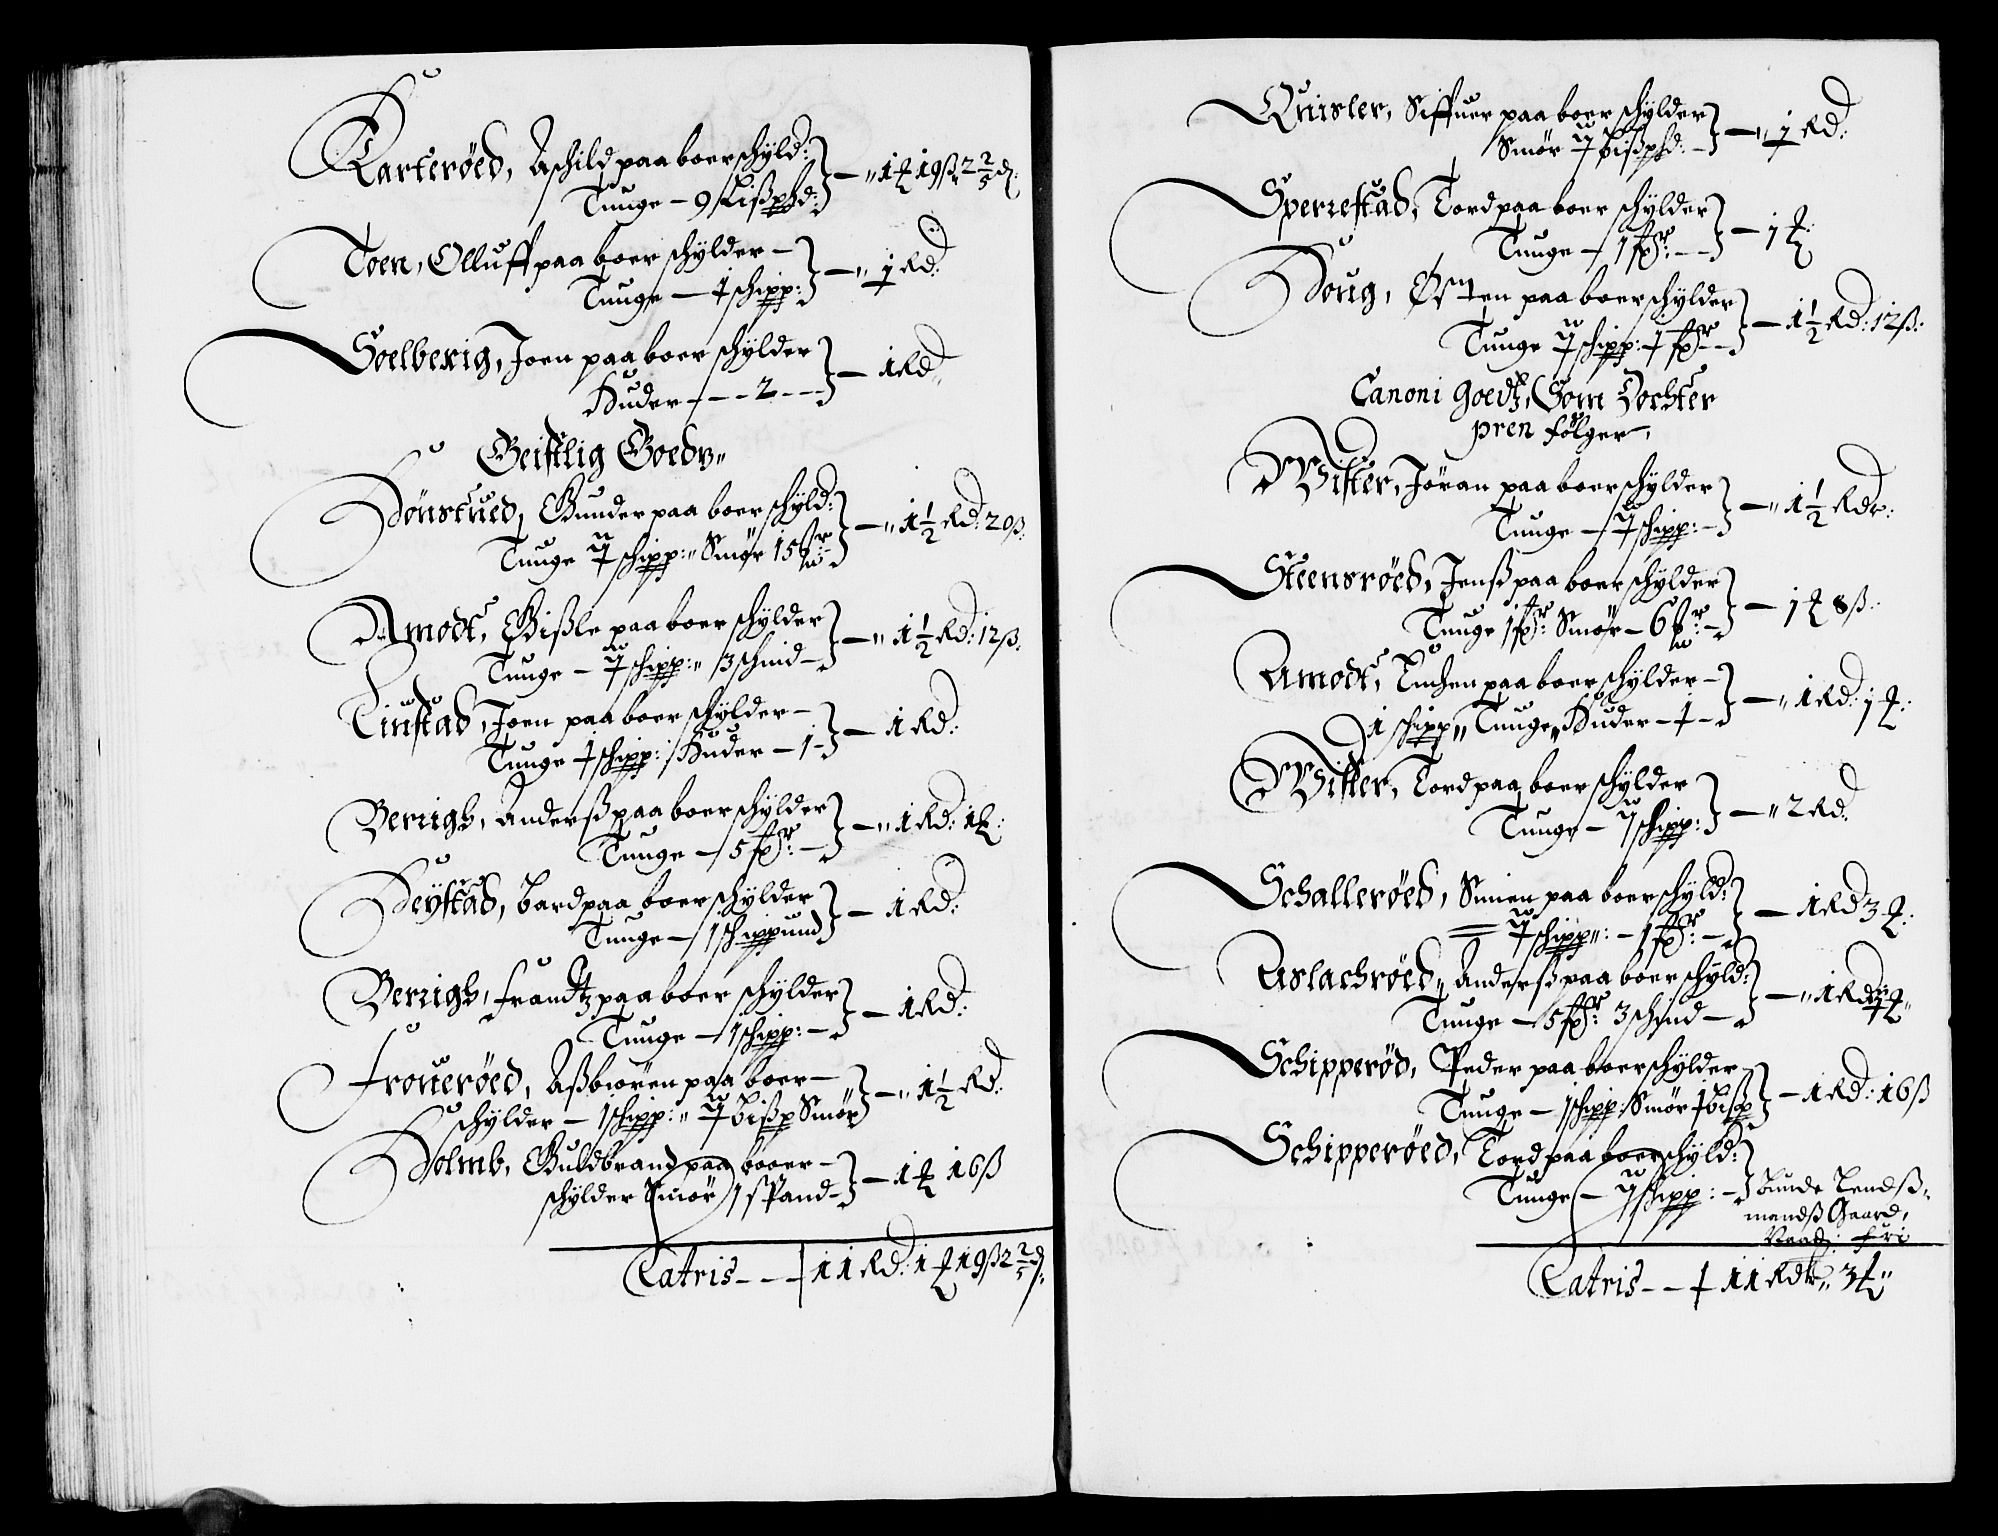 Karterøed, Aschild paa boer schyld:
Tunge – 9 Lißphd: – „ 1 ƶ 19 ß 2 2/5 d:
Toen, Olluff paa boer schylder –
Tunge – ½ schipp: – „ ½ Rd:
Soelberig, Joen paa boer schylder
Huder – – – 2 – – – 1 Rd„
Geistlig Goedz„
Hønstued, Gunder paa boer schyld:
Tunge schipp:„ Smør 15 – „ 1½ Rd: 20 ß:
Amodt, Gißle paa boer schylder
Tunge – schipp:„ 3 schind – „ 1½ Rd: 12 ß:
Linstad, Joen paa boer schylder –
Tunge ½ schipp: Huder – 1 – 1 Rd:
Berrigh, Anderß paa boer schylder
Tunge – 5 fp: – „ 1 Rd: 1 ƶ:
Heystad, Bard paa boer schylder
Tunge – 1 schippund – 1 Rd:
Berrigh, Frandtz paa boer schylder
Tunge – 1 schipp: – 1 Rd:
Frouerøed, Aßbiøren paa boer –
schylder – 1 schipp:„ bißp Smør – „ 1½ Rd:
Holmb, Guldbrand paa booer –
schylder Smør 1 spand – 1 ƶ 16 ß
Latris – – – 11 Rd: 1 ƶ 19 ß 2 2/5 d:
Quisler, Siffuer paa boer schylder
Smør bißphd: – „ ½ Rd:
Sperrestad, Tord paa boer schylder
Tunge – 1 fp: – – 1 ƶ:
Houg, Østen paa boer schylder
Tunge schipp: ½ fp – – 1½ Rd: 12 ß:
Canoni goedtz, Som Dochter
pren følger,
Wister, Jøran paa boer schylder
Tunge – schipp: – „ 1½ Rdr:
Steensrøed, Jenß paa boer schylder
Tunge 1 fp: Smør – 6 – 1 ƶ 8 ß:
Amodt, paa boer schylder –
1 schipp„ Tunge„ Huder – ½ – „ 1 Rd: 1 ƶ:
Wister, Tord paa boer schylder
Tunge – schipp: – „ 2 Rd:
Schallerøed, Suien paa boer schyld:
schipp„: – 1 fp: – 1 Rd 3 ƶ:
Aslachrøed„ Anderß paa boer schyld:
Tunge – 5 fp: 3 schind – „ 1 Rd ƶ„
Schipperød, Peder paa boer schylder
Tunge – 1 schipp: Smør ½ bißp – 1 Rd: 16 ß
Schipperøed, Tord paa boer schyld:
Tunge – schipp: – Bunde Lendß„
mandß Gaard,
fri
Latris – – ½ 11 Rdr„ 3 ƶ„